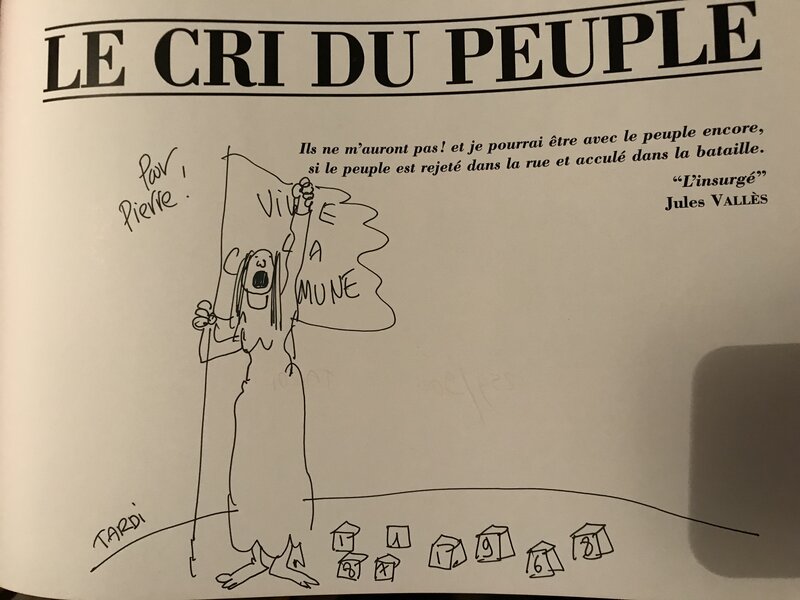 LE CRI DU PEUPLE
Ils ne m'auront pas ! et je pourrai être avec le peuple encore,
si le peuple est rejeté dans la rue et acculé dans la bataille.
“L'insurgé”
Jules VALLÈS
Pour,
Pierre !
VIVE
A
MUNE
TARDI
1 1 1. 9 6 8
8 7